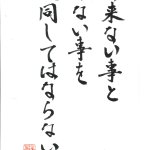 来ない事と
ない事を
同してはならない